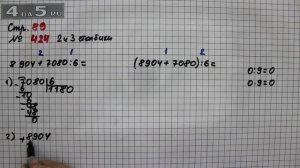 4DA5.RU
Стр. 89
№ 424 2 и 3 столбики
2 1 1 2
8904+7080:6= (8904+7080):6=
0:9=0
0·9=0
1) -7080|6
6 |1180
-10
6
-48
48
0
2) +8904